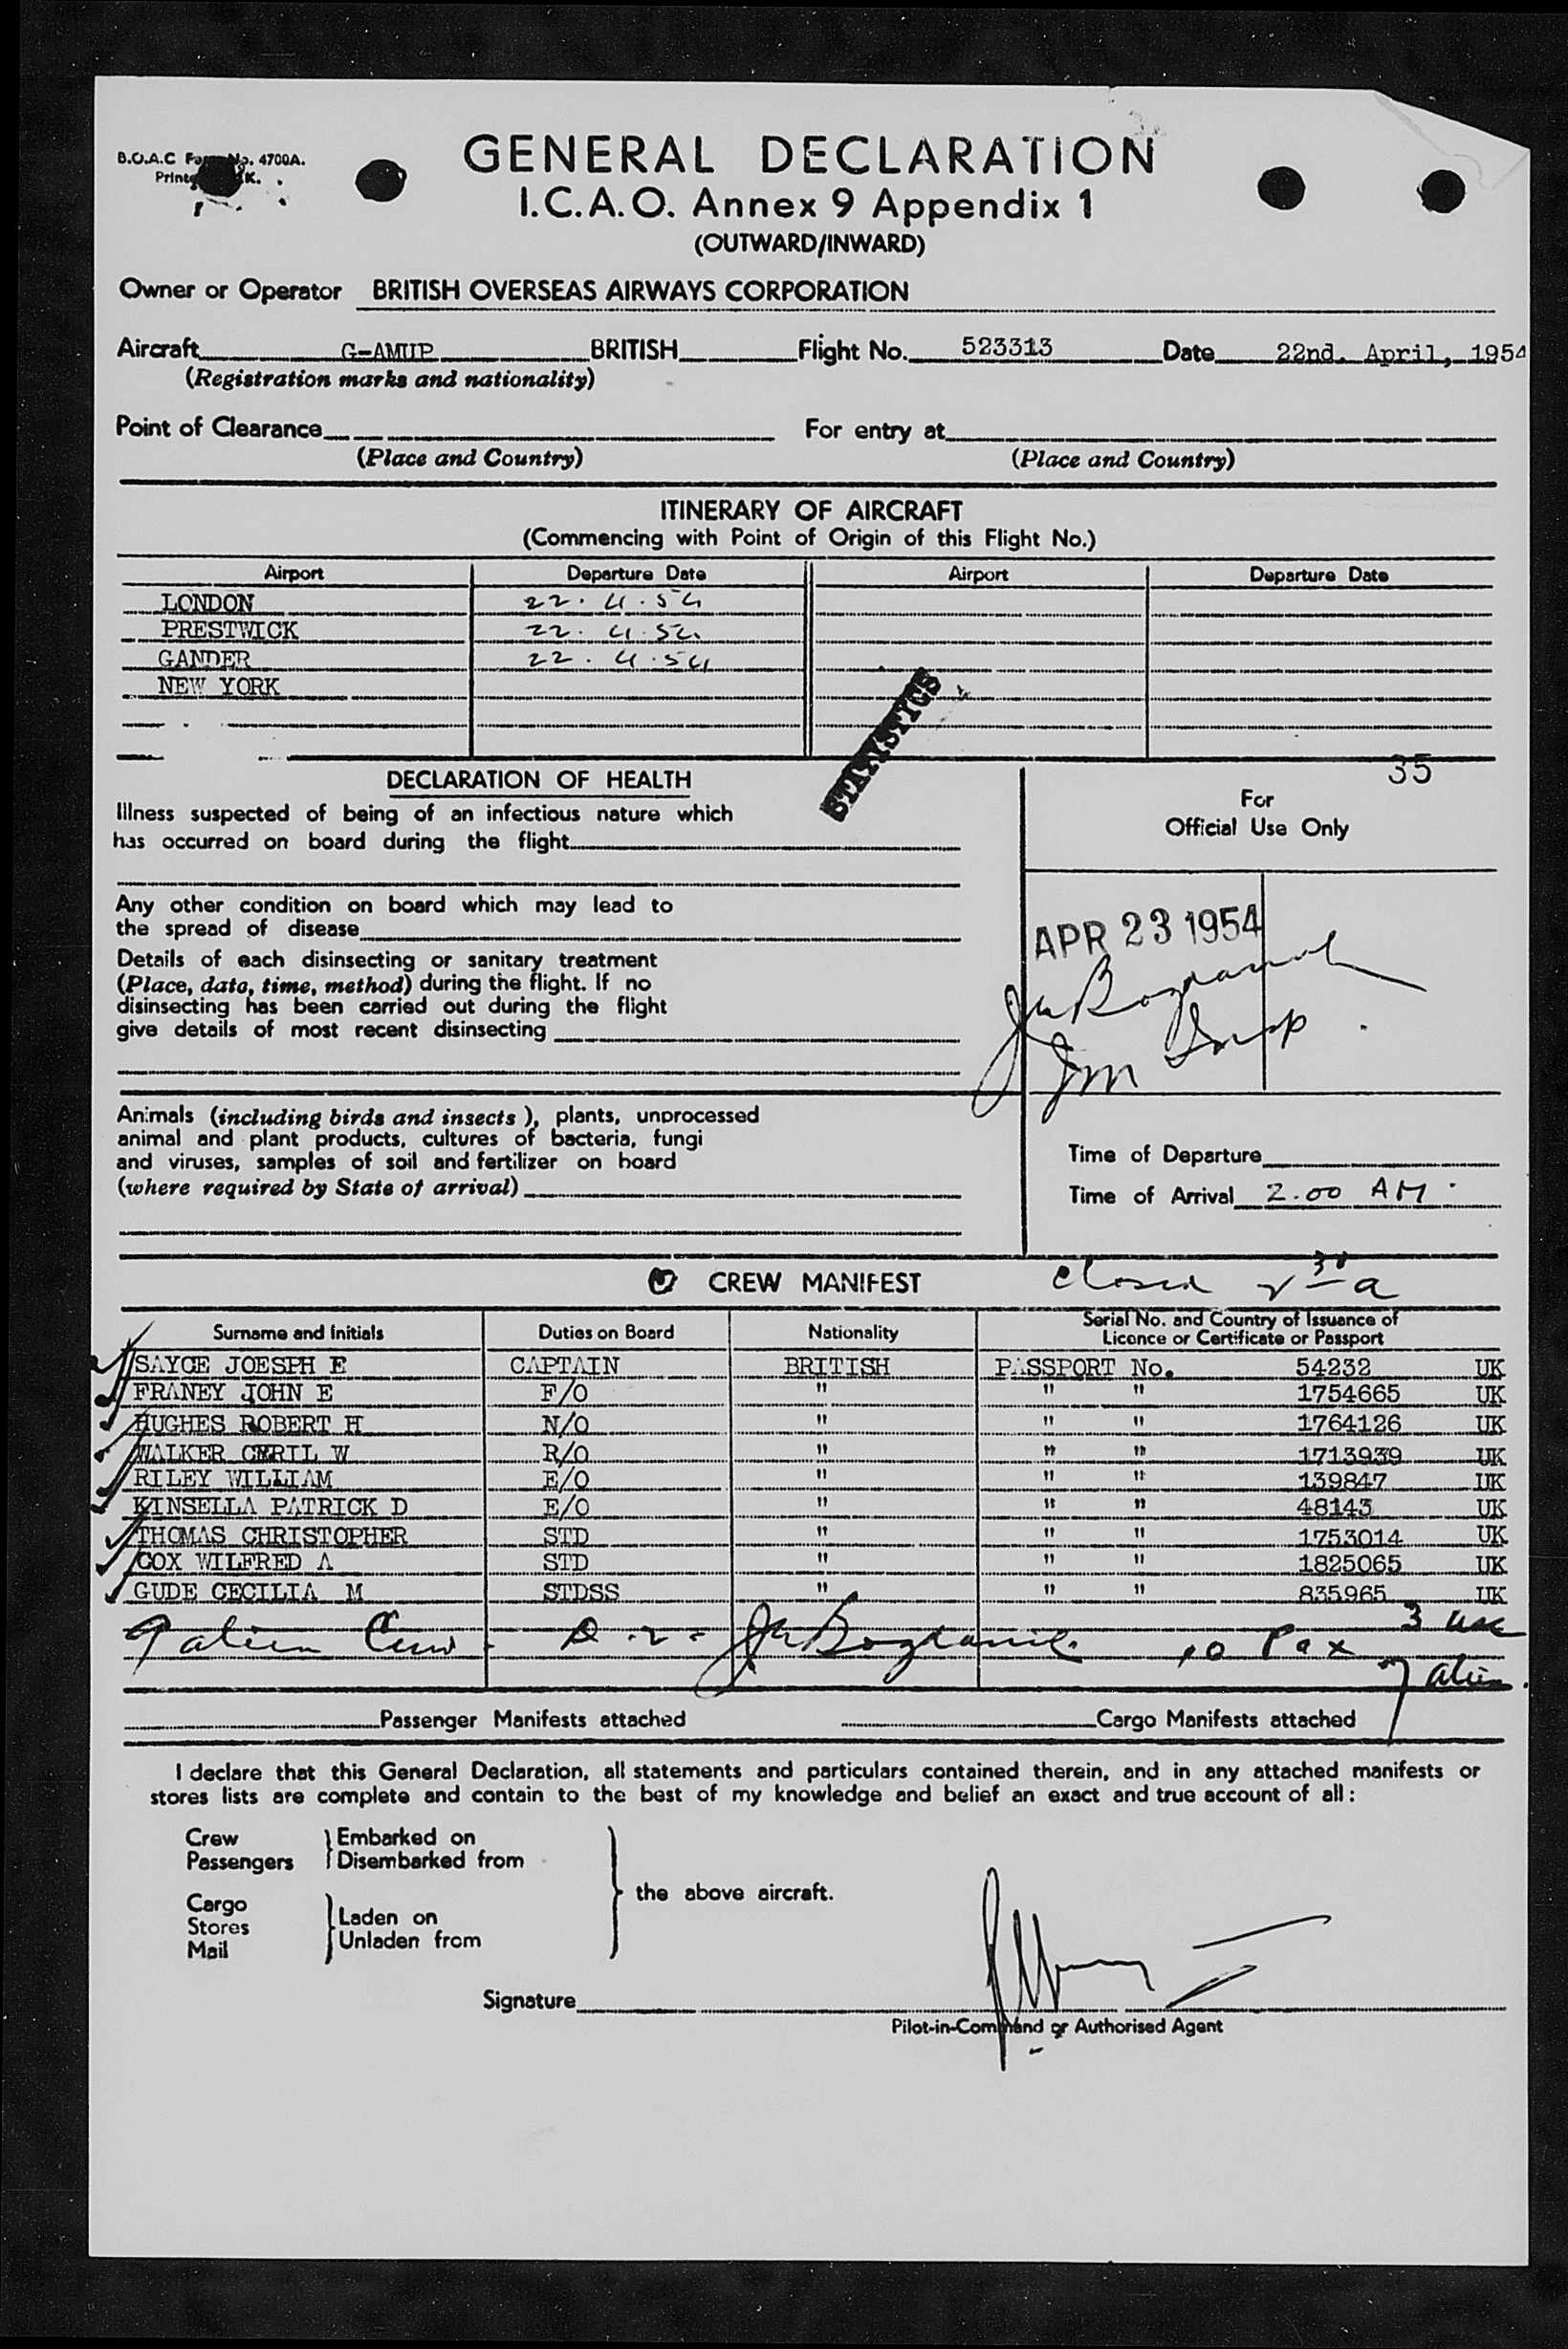 B.O.A.C Form No. 4700A.
GENERAL DECLARATION
I.C.A.O. Annex 9 Appendix 1
(OUTWARD/INWARD)
Owner or Operator BRITISH OVERSEAS AIRWAYS CORPORATION
Aircraft G-AMUP BRITISH Flight No. 523313 Date 22nd. April, 1954
(Registration marks and nationality)
Point of Clearance For entry at
(Place and Country) (Place and Country)
ITINERARY OF AIRCRAFT
(Commencing with Point of Origin of this Flight No.)
Airport Departure Date Airport Departure Date
LONDON 22.4.54
PRESTWICK 22.4.54
GANDER 22.4.54
NEW YORK
STATISTICS
35
DECLARATION OF HEALTH
Illness suspected of being of an infectious nature which
has occurred on board during the flight
Any other condition on board which may lead to
the spread of disease
Details of each disinsecting or sanitary treatment
(Place, date, time, method) during the flight. If no
disinsecting has been carried out during the flight
give details of most recent disinsecting
For
Official Use Only
APR 23 1954
Animals (including birds and insects), plants, unprocessed
animal and plant products, cultures of bacteria, fungi
and viruses, samples of soil and fertilizer on board
(where required by State of arrival)
Time of Departure
Time of Arrival 2.00 AM
CREW MANIFEST
closed 2 30 a
Surname and Initials Duties on Board Nationality Serial No. and Country of Issuance of Licence or Certificate or Passport
SAYCE JOESPH E CAPTAIN BRITISH PASSPORT No. 54232 UK
FRANEY JOHN E F/O " " " 1754665 UK
HUGHES ROBERT H N/O " " " 1764126 UK
WALKER CYRIL W R/O " " " 1713939 UK
RILEY WILLIAM E/O " " " 139847 UK
KINSELLA PATRICK D E/O " " " 48143 UK
THOMAS CHRISTOPHER STD " " " 1753014 UK
COX WILFRED A STD " " " 1825065 UK
GUDE CECILIA M STDSS " " " 835965 UK
9 alien Crew 10 Pax 3 usc
7 alien
Passenger Manifests attached Cargo Manifests attached
I declare that this General Declaration, all statements and particulars contained therein, and in any attached manifests or
stores lists are complete and contain to the best of my knowledge and belief an exact and true account of all:
Crew Embarked on
Passengers Disembarked from
the above aircraft.
Cargo
Stores Laden on
Mail Unladen from
Signature
Pilot-in-Command or Authorised Agent